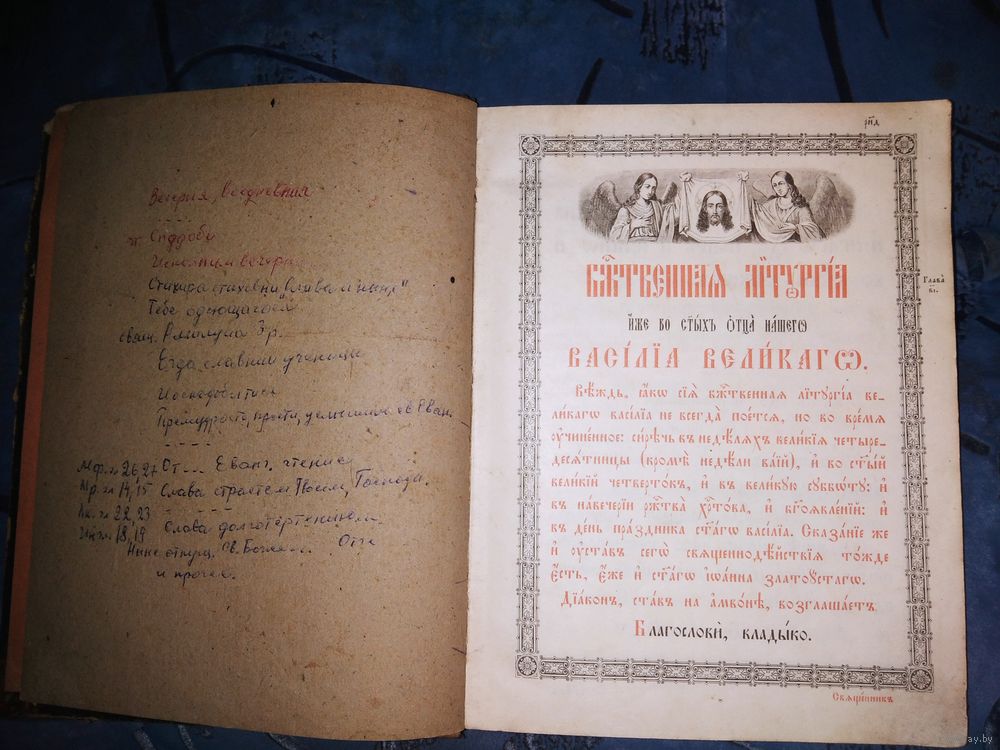 Вечерня, вседневная
Сподоби
Исполним вечерн
Стихира стиховни слава и ныне"
Тебе одеющагося
Егда славнии ученицы
И о сподобитися
Премудрость, прости, услышим св. Еван.
Мф. гл 26, 27 От... Еванг. чтение
Мр. гл 14, 15 Слава страстем Твоим, Господи.
Лк. гл 22, 23
Слава долготерпению
Ин. гл 18, 19
Ныне отпущ. Св. Боже... Отче
и прочее.
рн҃д
Бж҃твеннаѧ літꙋргі́а
и҆́же во ст҃ы́хъ ѻ҆тца̀ на́шегѡ
васі́лїа вели́кагѡ.
Глава̀
в҃і.
Вѣ́ждь, ꙗ҆́кѡ сїѧ̀ бж҃твеннаѧ літꙋргі́а ве-
ли́кагѡ васі́лїа не всегда̀ пое́тсѧ, но во вре́мѧ
ᲂу҆чине́нное: си́рѣчь въ недѣ́лѧхъ вели́кїѧ четыре-
десѧ́тницы (кромѣ̀ недѣ́ли ва́їй), и҆ во ст҃ы́й
вели́кїй четверто́къ, и҆ въ вели́кꙋю сꙋббѡ́тꙋ: и҆
въ наве́черїи рж҃тва̀ хр҃то́ва, и҆ бг҃оѧвле́нїй: и҆
въ де́нь пра́здника ст҃а́гѡ васі́лїа. Сказа́нїе же
и҆ ᲂу҆ста́въ сегѡ̀ свѧщеннодѣ́йствїѧ то́жде
є҆́сть, є҆́же и҆ ст҃а́гѡ і҆ѡа́нна златоꙋ́стагѡ.
Дїа́конъ, ста́въ на а҆мво́нѣ, возглаша́етъ:
Благословѝ, влады́ко.
Свѧще́нникъ